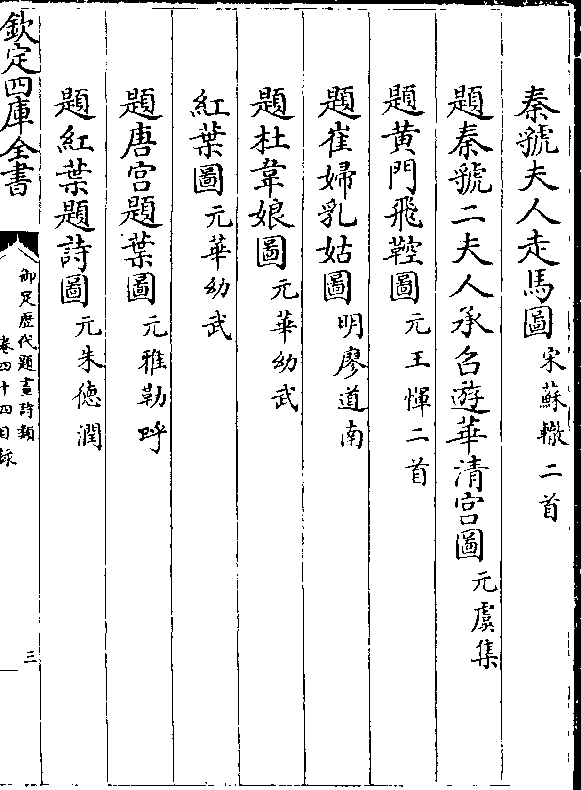 秦虢夫人走馬圖 宋蘇轍二首
題秦虢二夫人承召遊華清宫圖 元虞集
題黄門飛鞚圖 元王惲二首
題崔婦乳姑圖 明廖道南
題杜韋娘圖 元華幼武
紅葉圖 元華幼武
題唐宫題葉圖 元雅勒呼
題紅葉題詩圖 元朱德潤
欽定四庫全書
御定歷代題畫詩類
卷四十四目録
三